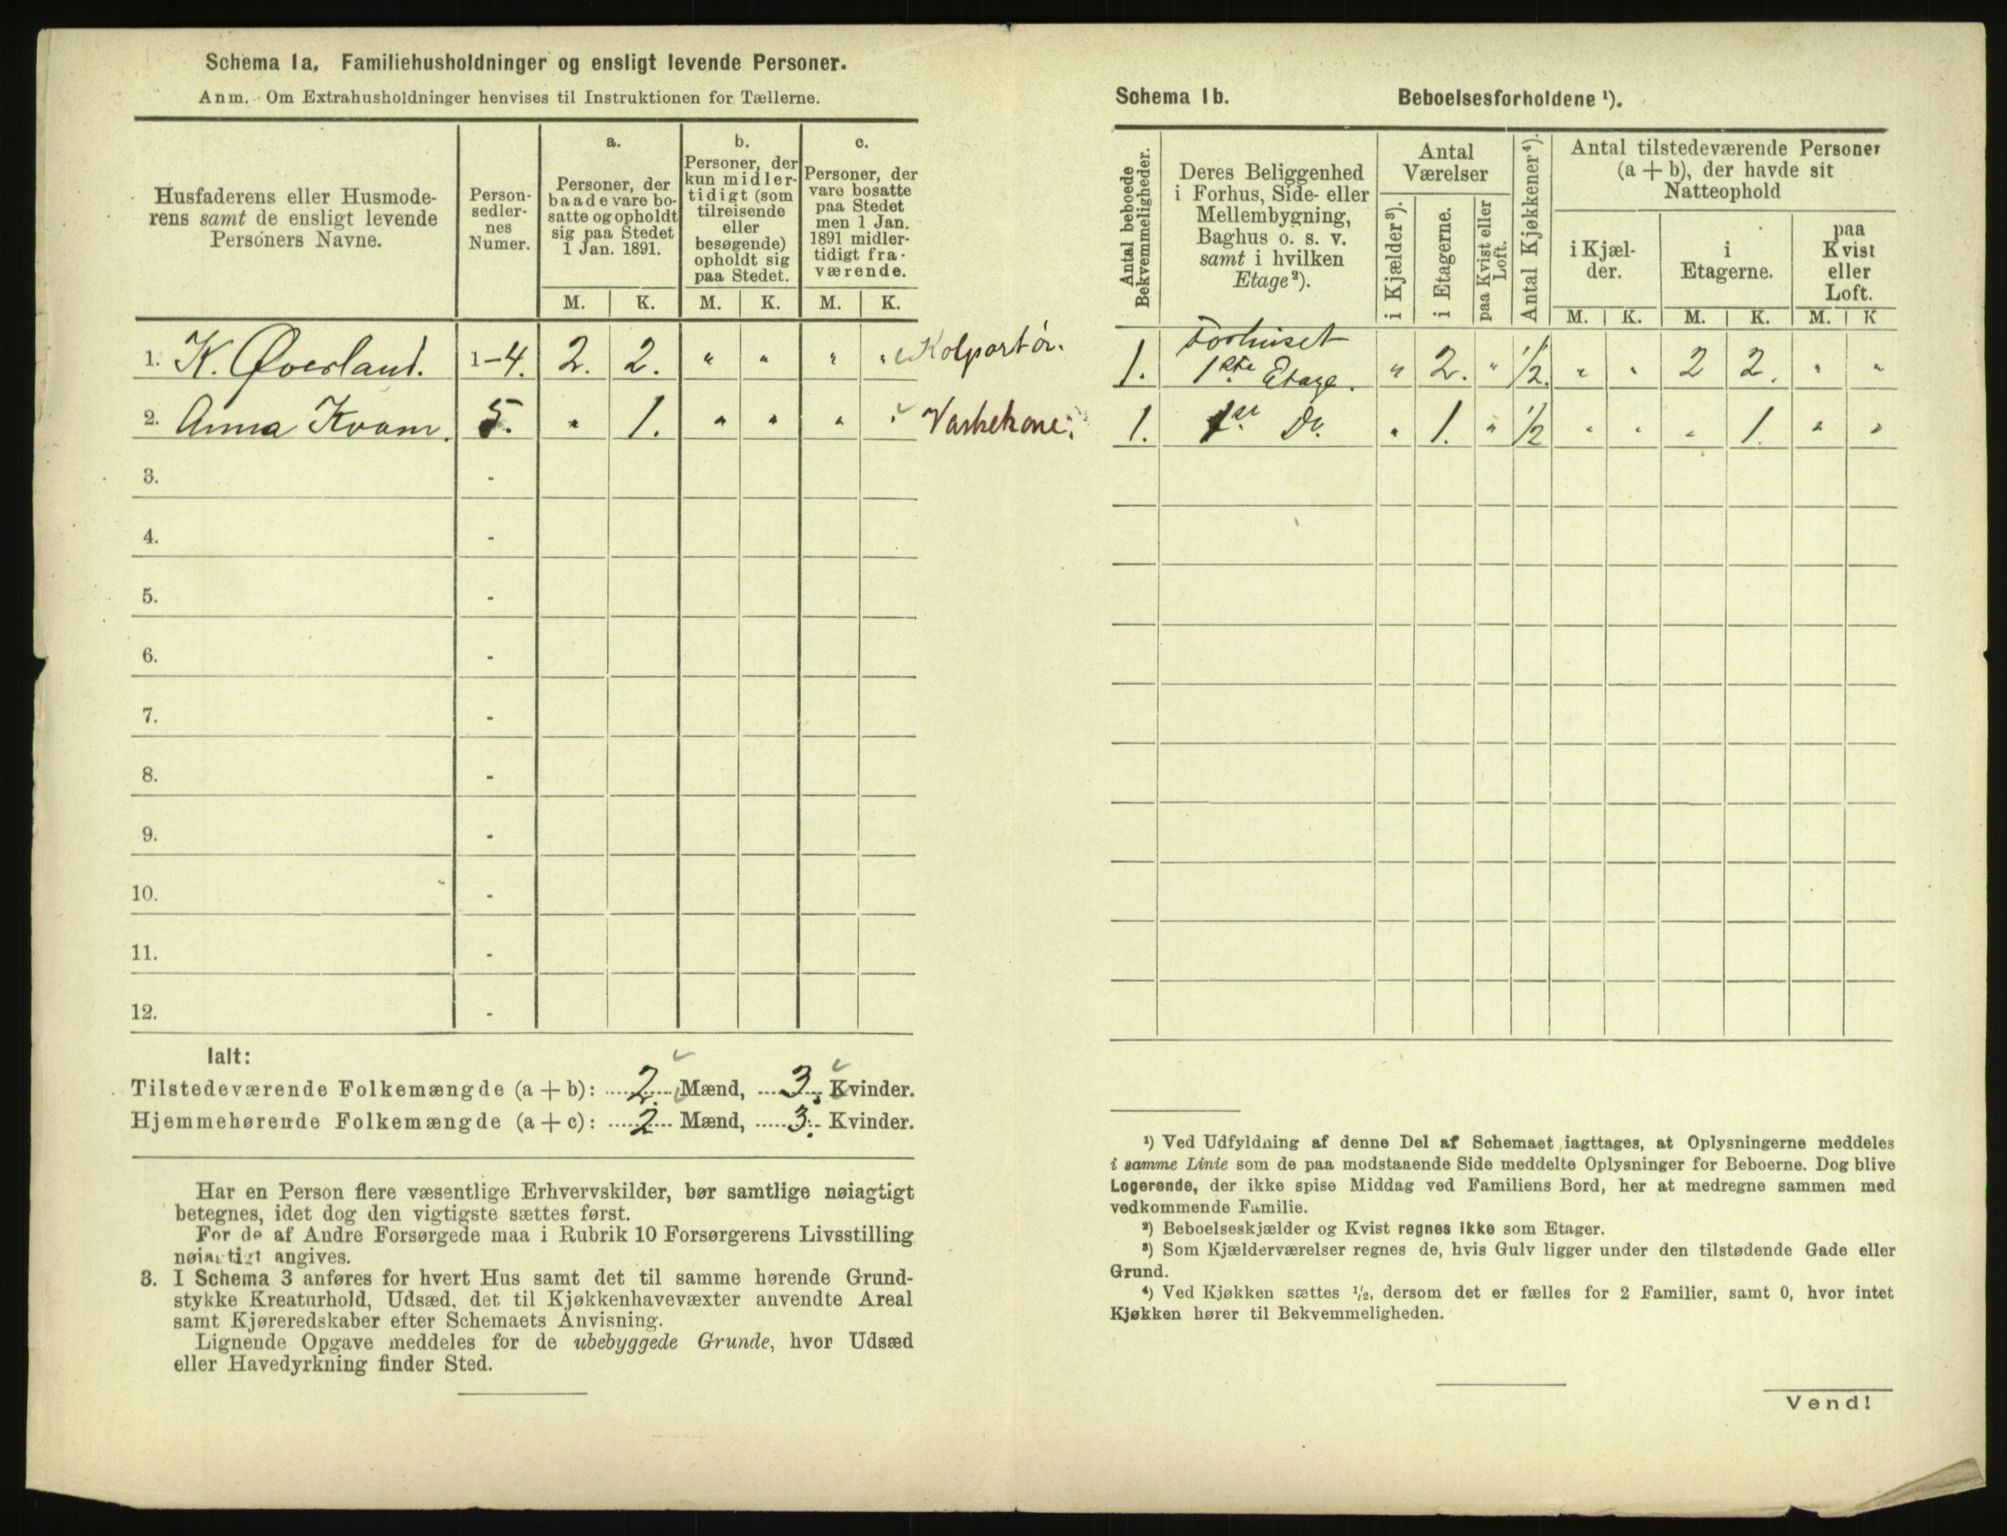 Schema 1a, Familiehusholdninger og ensligt levende Personer.
Anm. Om Extrahusholdninger henvises til Instruktionen for Tællerne.
Husfaderens eller Husmode-
rens samt de ensligt levende
Personers Navne.
Person-
sedler-
nes
Numer.
a.
Personer, der
baade vare bo-
satte og opholdt
sig paa Stedet
1 Jan. 1891.
b.
Personer, der
kun midler-
tidigt (som
tilreisende
eller
besøgende)
opholdt sig
paa Stedet.
c.
Personer, der
vare bosatte
paa Stedet
men 1 Jan.
1891 midler-
tidigt fra-
værende.
M. K. M. K. M. K.
1. K. Øverland. 1-4. 2. 2. " " " " Kolportør.
2. Anna Kvam. 5. " 1. " " " " Vaskekone.
3. -
4. -
5. -
6. -
7. -
8. -
9. -
10. -
11. -
12. -
Ialt:
Tilstedeværende Folkemængde (a + b): 2. Mænd, 3. Kvinder.
Hjemmehørende Folkemængde (a + c): 2 Mænd, 3. Kvinder.
Har en Person flere væsentlige Erhvervskilder, bør samtlige nøiagtigt
betegnes, idet dog den vigtigste sættes først.
For de af Andre Forsørgede maa i Rubrik 10 Forsørgerens Livsstilling
nøiagtigt angives.
3. I Schema 3 anføres for hvert Hus samt det til samme hørende Grund-
stykke Kreaturhold, Udsæd, det til Kjøkkenhavevæxter anvendte Areal
samt Kjøreredskaber efter Schemaets Anvisning.
Lignende Opgave meddeles for de ubebyggede Grunde, hvor Udsæd
eller Havedyrkning finder Sted.
Schema 1b. Beboelsesforholdene ¹).
Antal beboede
Bekvemmeligheder.
Deres Beliggenhed
i Forhus, Side- eller
Mellembygning,
Baghus o. s. v.
samt i hvilken
Etage²).
Antal
Værelser
i Kjælder³).
i Etagerne.
paa Kvist eller
Loft.
Antal Kjøkkener⁴).
Antal tilstedeværende Personer
(a + b), der havde sit
Natteophold
i Kjæl-
der.
i
Etagerne.
paa
Kvist
eller
Loft.
M. K. M. K. M. K
Forhuset
1. 1ste Etage. " 2. " 1/2. " " 2 2. " "
1. 1st Do. " 1. " 1/2 " " " 1. " "
¹) Ved Udfyldning af denne Del af Schemaet iagttages, at Oplysningerne meddeles
i samme Linie som de paa modstaaende Side meddelte Oplysninger for Beboerne. Dog blive
Logerende, der ikke spise Middag ved Familiens Bord, her at medregne sammen med
vedkommende Familie.
²) Beboelseskjælder og Kvist regnes ikke som Etager.
³) Som Kjælderværelser regnes de, hvis Gulv ligger under den tilstødende Gade eller
Grund.
⁴) Ved Kjøkken sættes ½, dersom det er fælles for 2 Familier, samt 0, hvor intet
Kjøkken hører til Bekvemmeligheden.
Vend!